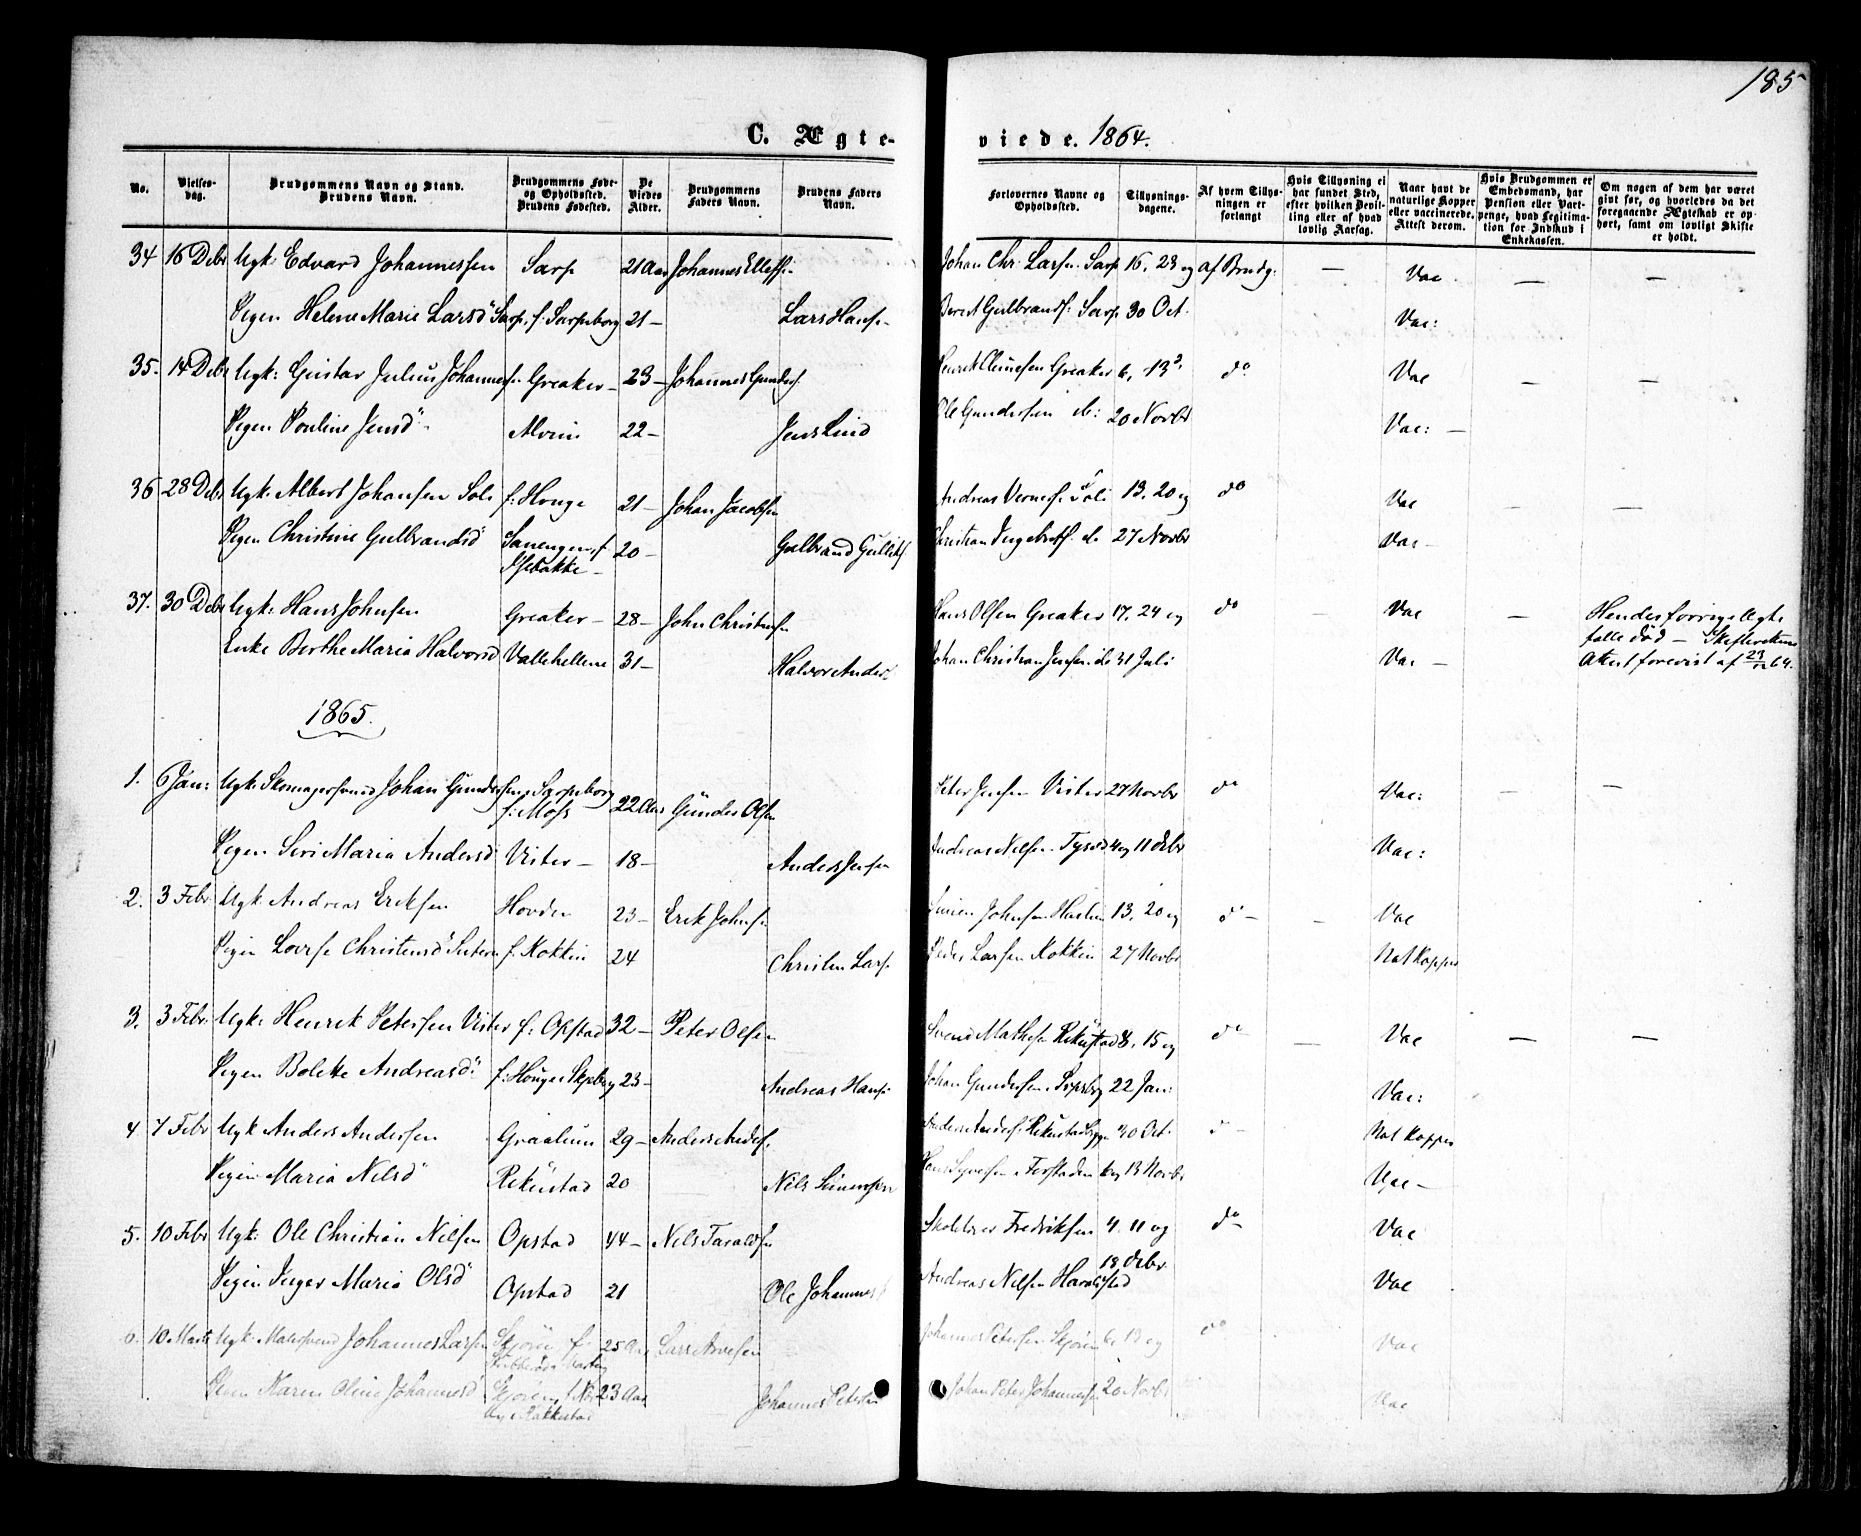 185
C. Ægteviede. 1864.
No.
Vielsesdag.
Brudgommens Navn og Stand.
Brudens Navn.
Brudgommens Føde-
og Opholdssted.
Brudens Fødested.
De
Viedes
Alder.
Brudgommens
Faders Navn.
Brudens Faders
Navn.
Forlovernes Navne og
Opholdssted.
Tillysnings-
dagene.
Af hvem Tillys-
ningen er
forlangt
Hvis Tillysning ei
har fundet Sted,
efter hvilken Bevil-
ling eller af hvad
lovlig Aarsag.
Naar havt de
naturlige Kopper
eller vaccinerede.
Attest derom.
Hvis Brudgommen er
Embedsmand, har
Pension eller Vart-
penge, hvad Legitima-
tion for Indskud i
Enkekassen.
Om nogen af dem har været
gift før, og hvorledes da det
foregaaende Ægteskab er op-
hørt, samt om lovligt Skifte
er holdt.
34 16 Debr Ugk: Edvard Johannessen Sarp 21 Aar Johannes Ellefsn Johan Chr: Larsen Sarp 16, 23 og af Brudg: — Vac — —
Pigen Helene Marie Larsd Sarp, f: Sarpsborg 21 — Lars Hans- Berent Gulbrands: Sarp 30 Oct. Vac:
35. 14 Debr Ugk: Gustav Julius Johannes- Greaker — 23 — Johannes Gunders. Henrik Clemesen Greaker 6, 13 do Vac — —
Pigen Pouline Jensd Alvim 22 — Jens Lind Ole Gundersen do: 20 Novbr Vac: —
36 28 Debr Ugk: Albert Johansen Soli f: Houge 21 — Johan Jacobsen Andreas Soli 13, 20 og do Vac — —
Pigen Christine Gulbrandsd f 20 — Gulbrand Christian Ingebrets. do 27 Novbr Vac —
Isebakke —
37. 30 Debr Ugk: Hans Johnsen Greaker — 28 — John Christensen Hans Olsen Greaker 17, 24 og do — Vac — Hendes forrige Ægte
fælle død — Skifterettens
Enke Berthe Maria Halvorsd Vallehellene 31 — Halvor Anders Johan Christian Jensen do 31 Juli Vac — Attest forevist af 23/12 64.
1865.
1. 6 Jan: Ugk: Skomagersvend Johan Gundersen, Sarpsborg
f: Moss 22 Aar Gunder Olsen Peter Jensen Vister 27 Novbr do Vac: — —
Pigen Seri Maria Andersd Vister — 18 — Anders Jensen Andreas Nilsen 4 og 11 Debr Vac:
2. 3 Febr Ugk Andreas Eriksen Hovden 23 — Erik Johns- Johnsen 13, 20 og do — — Vac
Pigen Lovise Christensd f. Kokkin 24 Christen Lars- Peder Larsen Kokkin 27 Novbr Nat Kopper
3. 3 Febr. Ugk: Henrik Petersen Vister f: Opstad 32 — Peter Olsen Svend Mathesen Rekustad 8, 15 og do — Vac — —
Pigen Bolette Andreasd: f: Houge Skpbrg 23 — Andreas Hans- Johan Gundersen, Sarpsborg 22 Jan: Vac:
4 7 Febr Ugk Anders Andersen Graalum 29 — Anders Anders. Anders Anders. 30 Oct. do — Nat Kopper
Pigen Maria Nilsd Rekustad 20 Nils Simensen Hans Syversen Forstaden 6 og 13 Novbr Vac —
5. 10 Febr Ugk: Ole Christian Nilsen Opstad 44 — Nils Taraldsen Skolelærer Fredriksen 4, 11 og do Vac
18 Debr
Pigen Inger Maria Olsd Opstad 21 Ole Johannes Andreas Nilsen Haralstad Vac
6. 10 Marts Ugk: Malersvend Johannes Larsen Skjøren f: 25 Aar Lars Arvesen Johannes Petersen Skjøren 6, 13 og do Vac
Pigen Karen Oline Johannesd Skjøren, f. 23 Aar Johannes Petersen Johan Peter Johannessen 20 Novbr Vac
Rakkestad